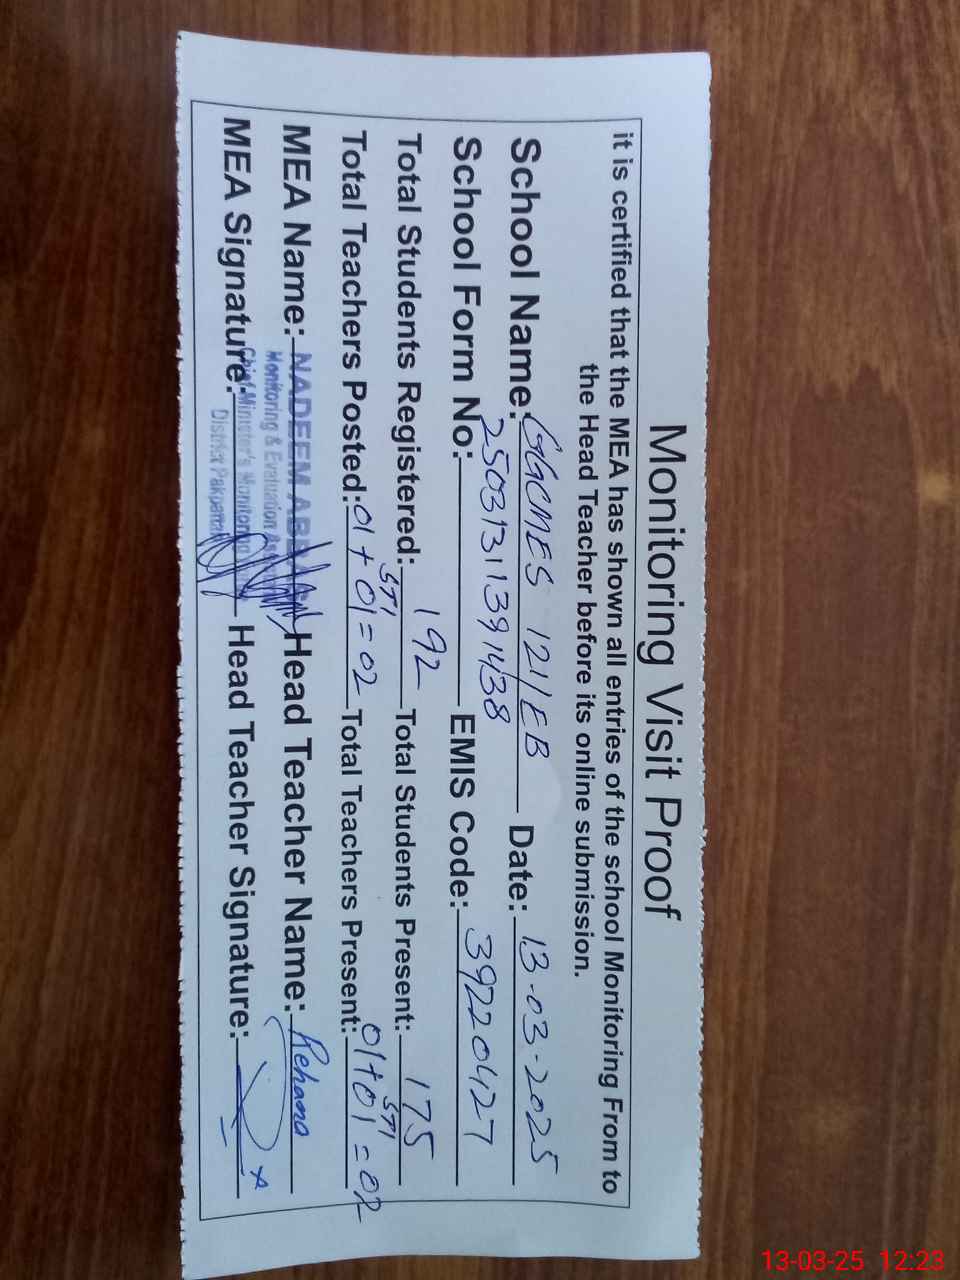 Monitoring Visit Proof
it is certified that the MEA has shown all entries of the school Monitoring From to
the Head Teacher before its online submission.
School Name: GGCMES 121/EB Date: 13-03-2025
School Form No: 25031311391438 EMIS Code: 39220427
Total Students Registered: 192 Total Students Present: 175
Total Teachers Posted: 01 + 01 STI = 02 Total Teachers Present: 01 + 01 STI = 02
MEA Name: NADEEM Head Teacher Name: Rehana
Monitoring & Evaluation
MEA Signature: Chief Minister's Monitoring Head Teacher Signature:
District Pakpattan
13-03-25 12:23